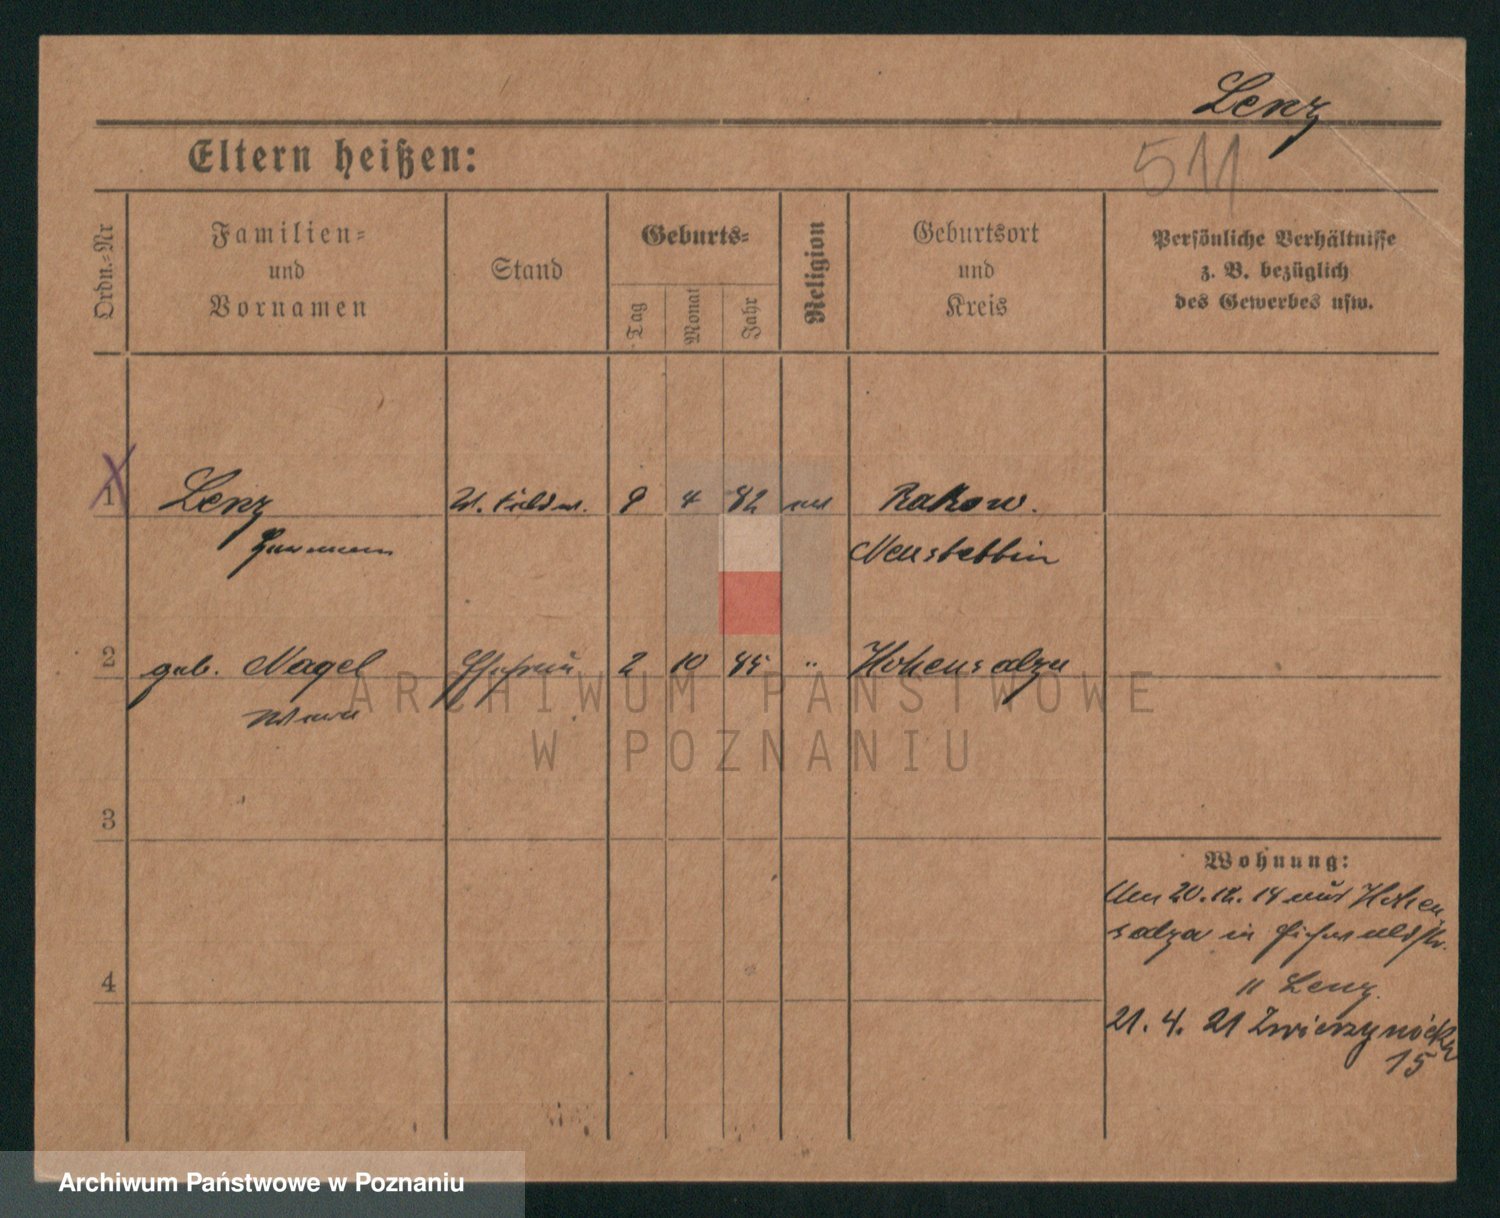 Lenz
511
Eltern heißen:
Ordn.-Nr
Familien-
und
Vornamen
Stand
Geburts-
Tag
Monat
Jahr
Religion
Geburtsort
und
Kreis
Persönliche Verhältnisse
z. B. bezüglich
des Gewerbes usw.
1 Lenz 4 82 Rakow.
Hermann Neustettin
2 geb. Nagel Ehefrau 2 10 85 " Hohensalza
ARCHIWUM PAŃSTWOWE
W POZNANIU
3
Wohnung:
20. 12. 14 aus Hohen
salza in
4
11 Lenz.
21. 4. 21 Zwierzyniecka
15
Archiwum Państwowe w Poznaniu